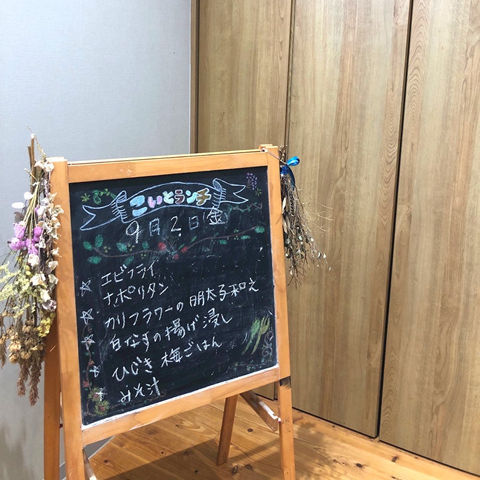 こいとランチ
9月2日(金)
エビフライ
ナポリタン
カリフラワーの明太子和え
白なすの揚げ浸し
ひじき梅ごはん
みそ汁